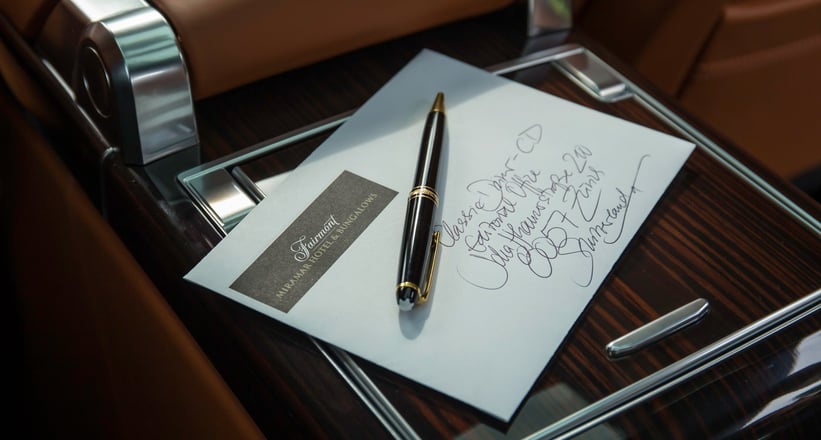 Fairmont
MIRAMAR HOTEL & BUNGALOWS
Classic Driver - CD
Editorial Office
Schaffhauserstraße 210
8057 Zürich
Switzerland